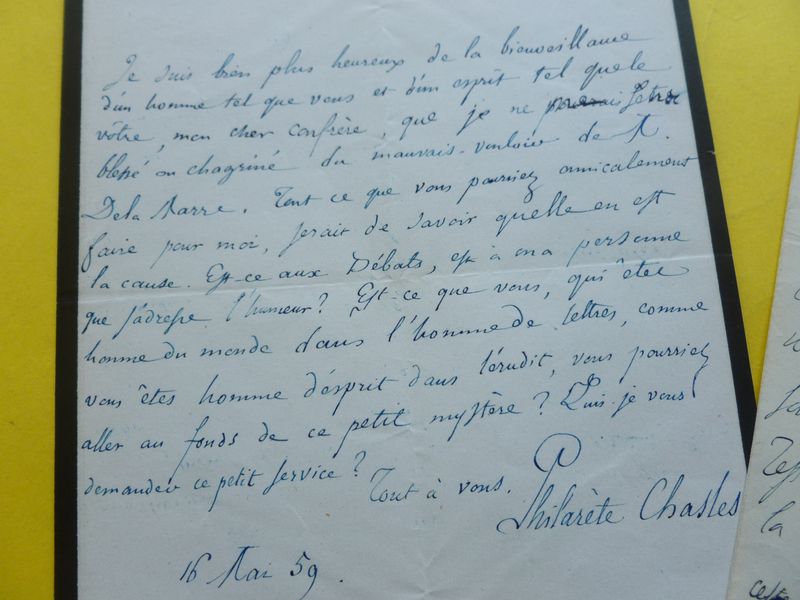 Je suis bien plus heureux de la bienveillance
d'un homme tel que vous et d'un esprit tel que le
vôtre, mon cher confrère, que je ne pourrais l'être
blessé ou chagriné du mauvais-vouloir de M.
De la Marre. Tout ce que vous pourriez amicalement
faire pour moi, serait de savoir quelle en est
la cause. Est-ce aux Débats, est-à ma personne
que s'adresse l'humeur? Est-ce que vous, qui êtes
homme du monde dans l'homme de lettres, comme
vous êtes homme d'esprit dans l'érudit, vous pourriez
aller au fonds de ce petit mystère? Puis-je vous
demander ce petit service?
Tout à vous.
Philarète Chasles
16 Mai 59.
la